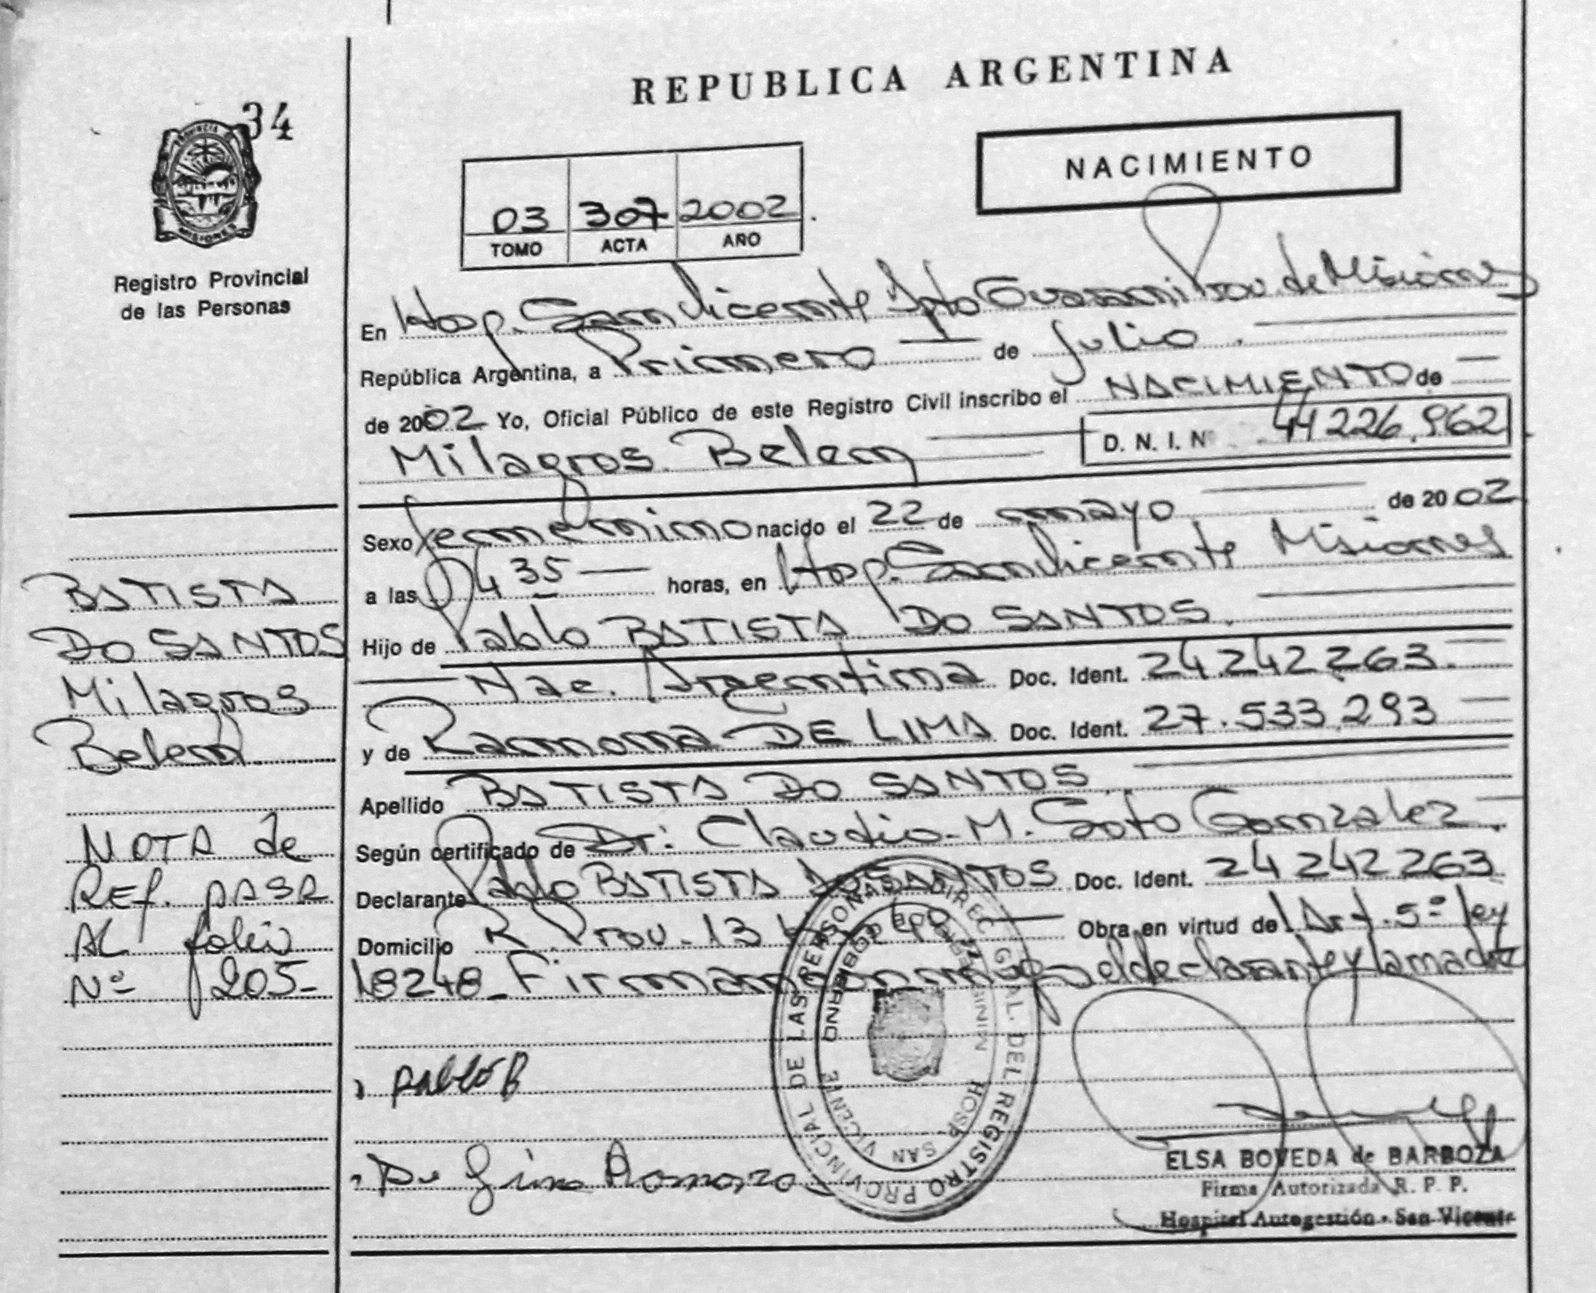 REPUBLICA ARGENTINA
34
PROVINCIA DE
MISIONES
Registro Provincial
de las Personas
NACIMIENTO
03 307 2002
TOMO ACTA AÑO
En Hosp. San Vicente Dpto Guarani Prov. de Misiones
República Argentina, a Primero de Julio
de 2002 Yo, Oficial Público de este Registro Civil inscribo el NACIMIENTO de
Milagros Belen
D. N. I. N 44226.962
Sexo femenino nacido el 22 de mayo de 2002
a las 04 35 horas, en Hosp. San Vicente Misiones
Hijo de Pablo BATISTA DO SANTOS.
Nac. Argentina Doc. Ident. 24.242.263.
y de Ramona DE LIMA Doc. Ident. 27.533.293
Apellido BATISTA DO SANTOS
Según certificado de Dr: Claudio M. Soto Gonzalez.
Declarante Pablo BATISTA DO SANTOS Doc. Ident. 24 242 263
Domicilio R. Prov. 13 Obra en virtud del Art. 5º ley
18248 Firman el declarante y la madre
BATISTA
DO SANTOS
Milagros
Belen
NOTA de
REf. PASA
AL folio
Nº 205
pablo B
ELSA BOVEDA de BARBOZA
Firma Autorizada R. P. P.
Hospital Autogestión - San Vicente
DIREC. GRAL. DEL REGISTRO PROVINCIAL DE LAS PERSONAS
HOSP. SAN VICENTE